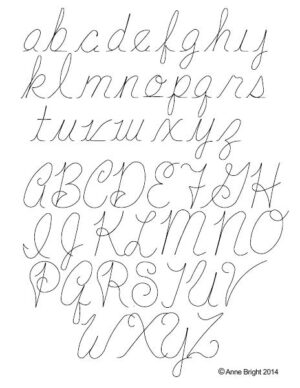 abcdefghij
klmnopqrs
tuvwxyz
ABCDEFGH
IJKLMNO
PQRSTUV
WXYZ
©Anne Bright 2014